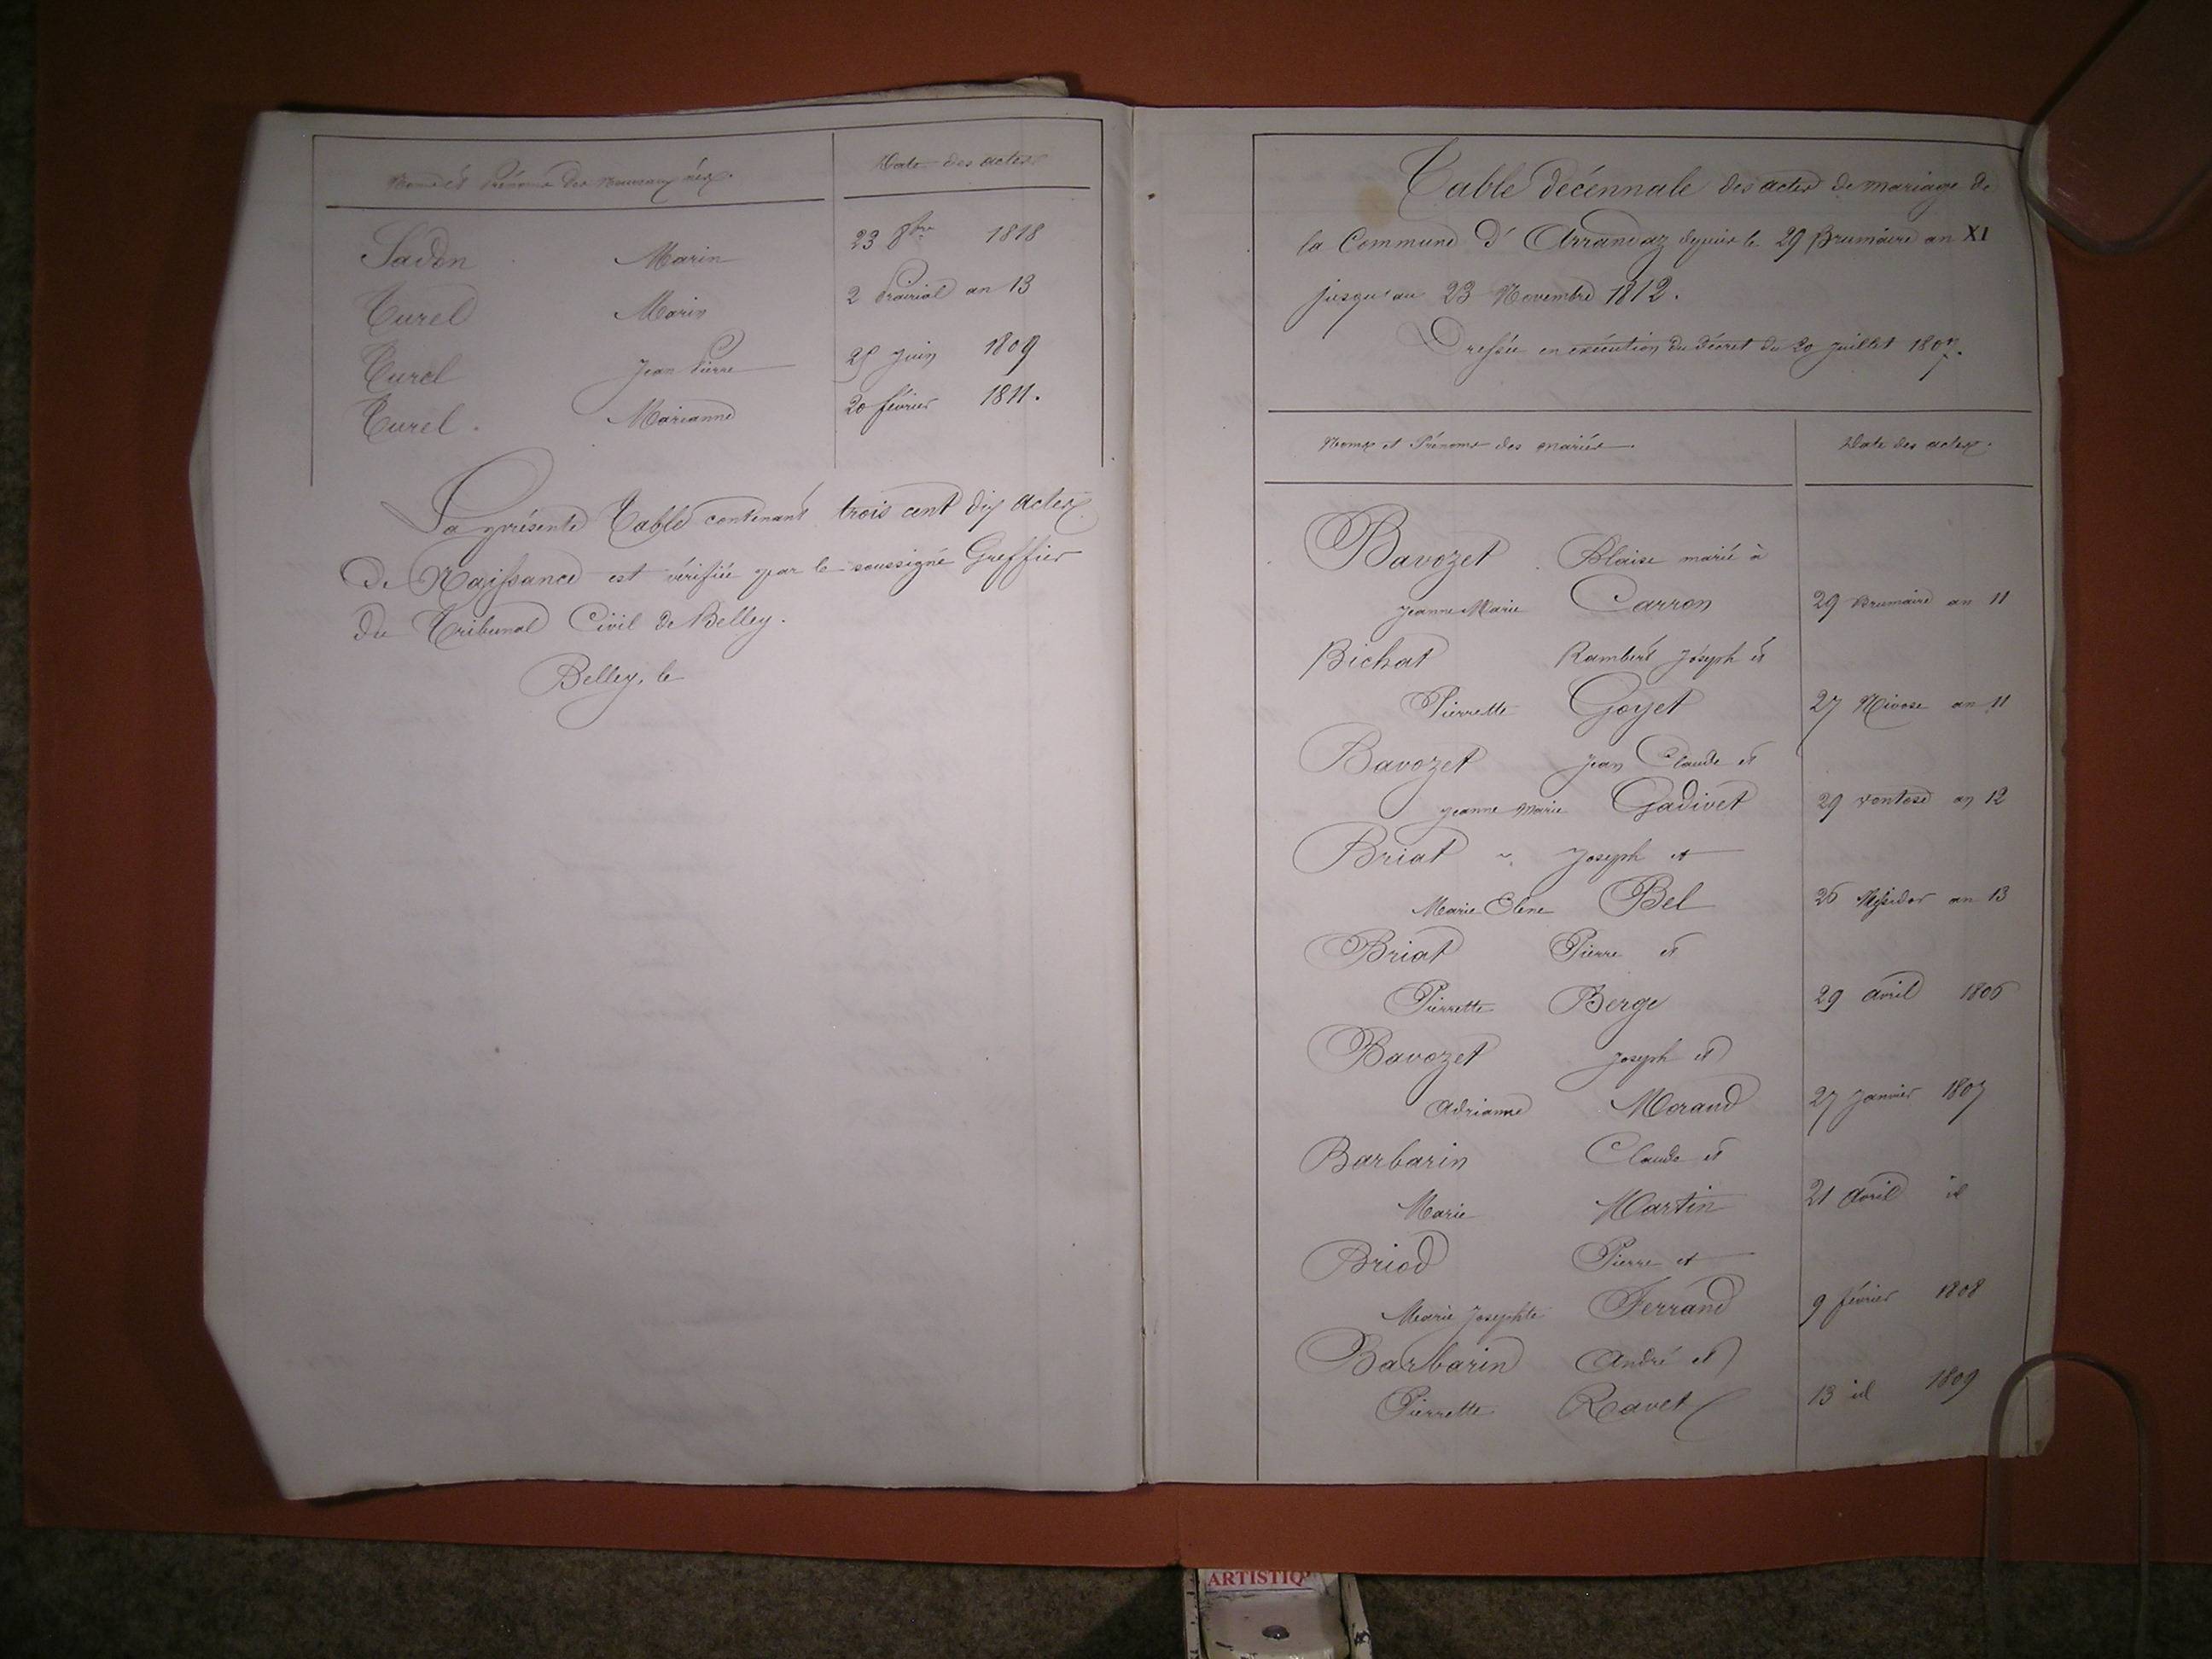 Noms et Prénoms des Nouveaux nés. Date des actes
Sadon Marin 23 8bre 1818
Curel Marin 2 Prairial an 13
Curel Jean Pierre 25 juin 1809
Curel. Marianne 20 février 1811.
La présente Table contenant trois cent dix actes
de Naissance est vérifiée par le soussigné Greffier
du Tribunal Civil de Belley.
Belley, le
Table décennale des actes de mariage de
la Commune d'Arrandaz depuis le 29 Brumaire an XI
jusqu'au 23 Novembre 1812.
Dressée en exécution du décret du 20 juillet 1807.
Noms et Prénoms des mariés. Date des actes.
Bavozet Blaise marié à
Jeanne Marie Carron 29 Brumaire an 11
Bichat Rambert Joseph et
Pierrette Goyet 27 Nivose an 11
Bavozet Jean Claude et
Jeanne Marie Gadivet 29 ventose an 12
Briat Joseph et
Marie Elene Bel 26 Messidor an 13
Briat Pierre et
Pierrette Berge 29 avril 1806
Bavozet Joseph et
Adrianne Morand 27 Janvier 1807
Barbarin Claude et
Marie Martin 21 avril id
Briod Pierre et
Marie Josephte Ferrand 9 février 1808
Barbarin André et
Pierrette Ravet 13 id 1809
ARTISTIQ